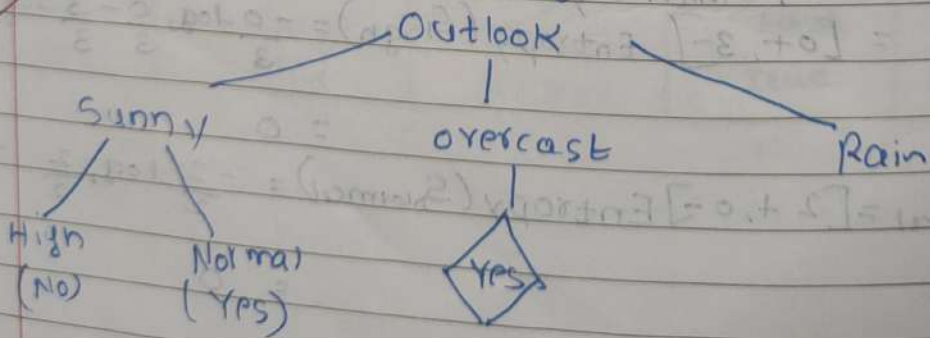 Outlook
Sunny overcast Rain
High Normal Yes
(No) (Yes)